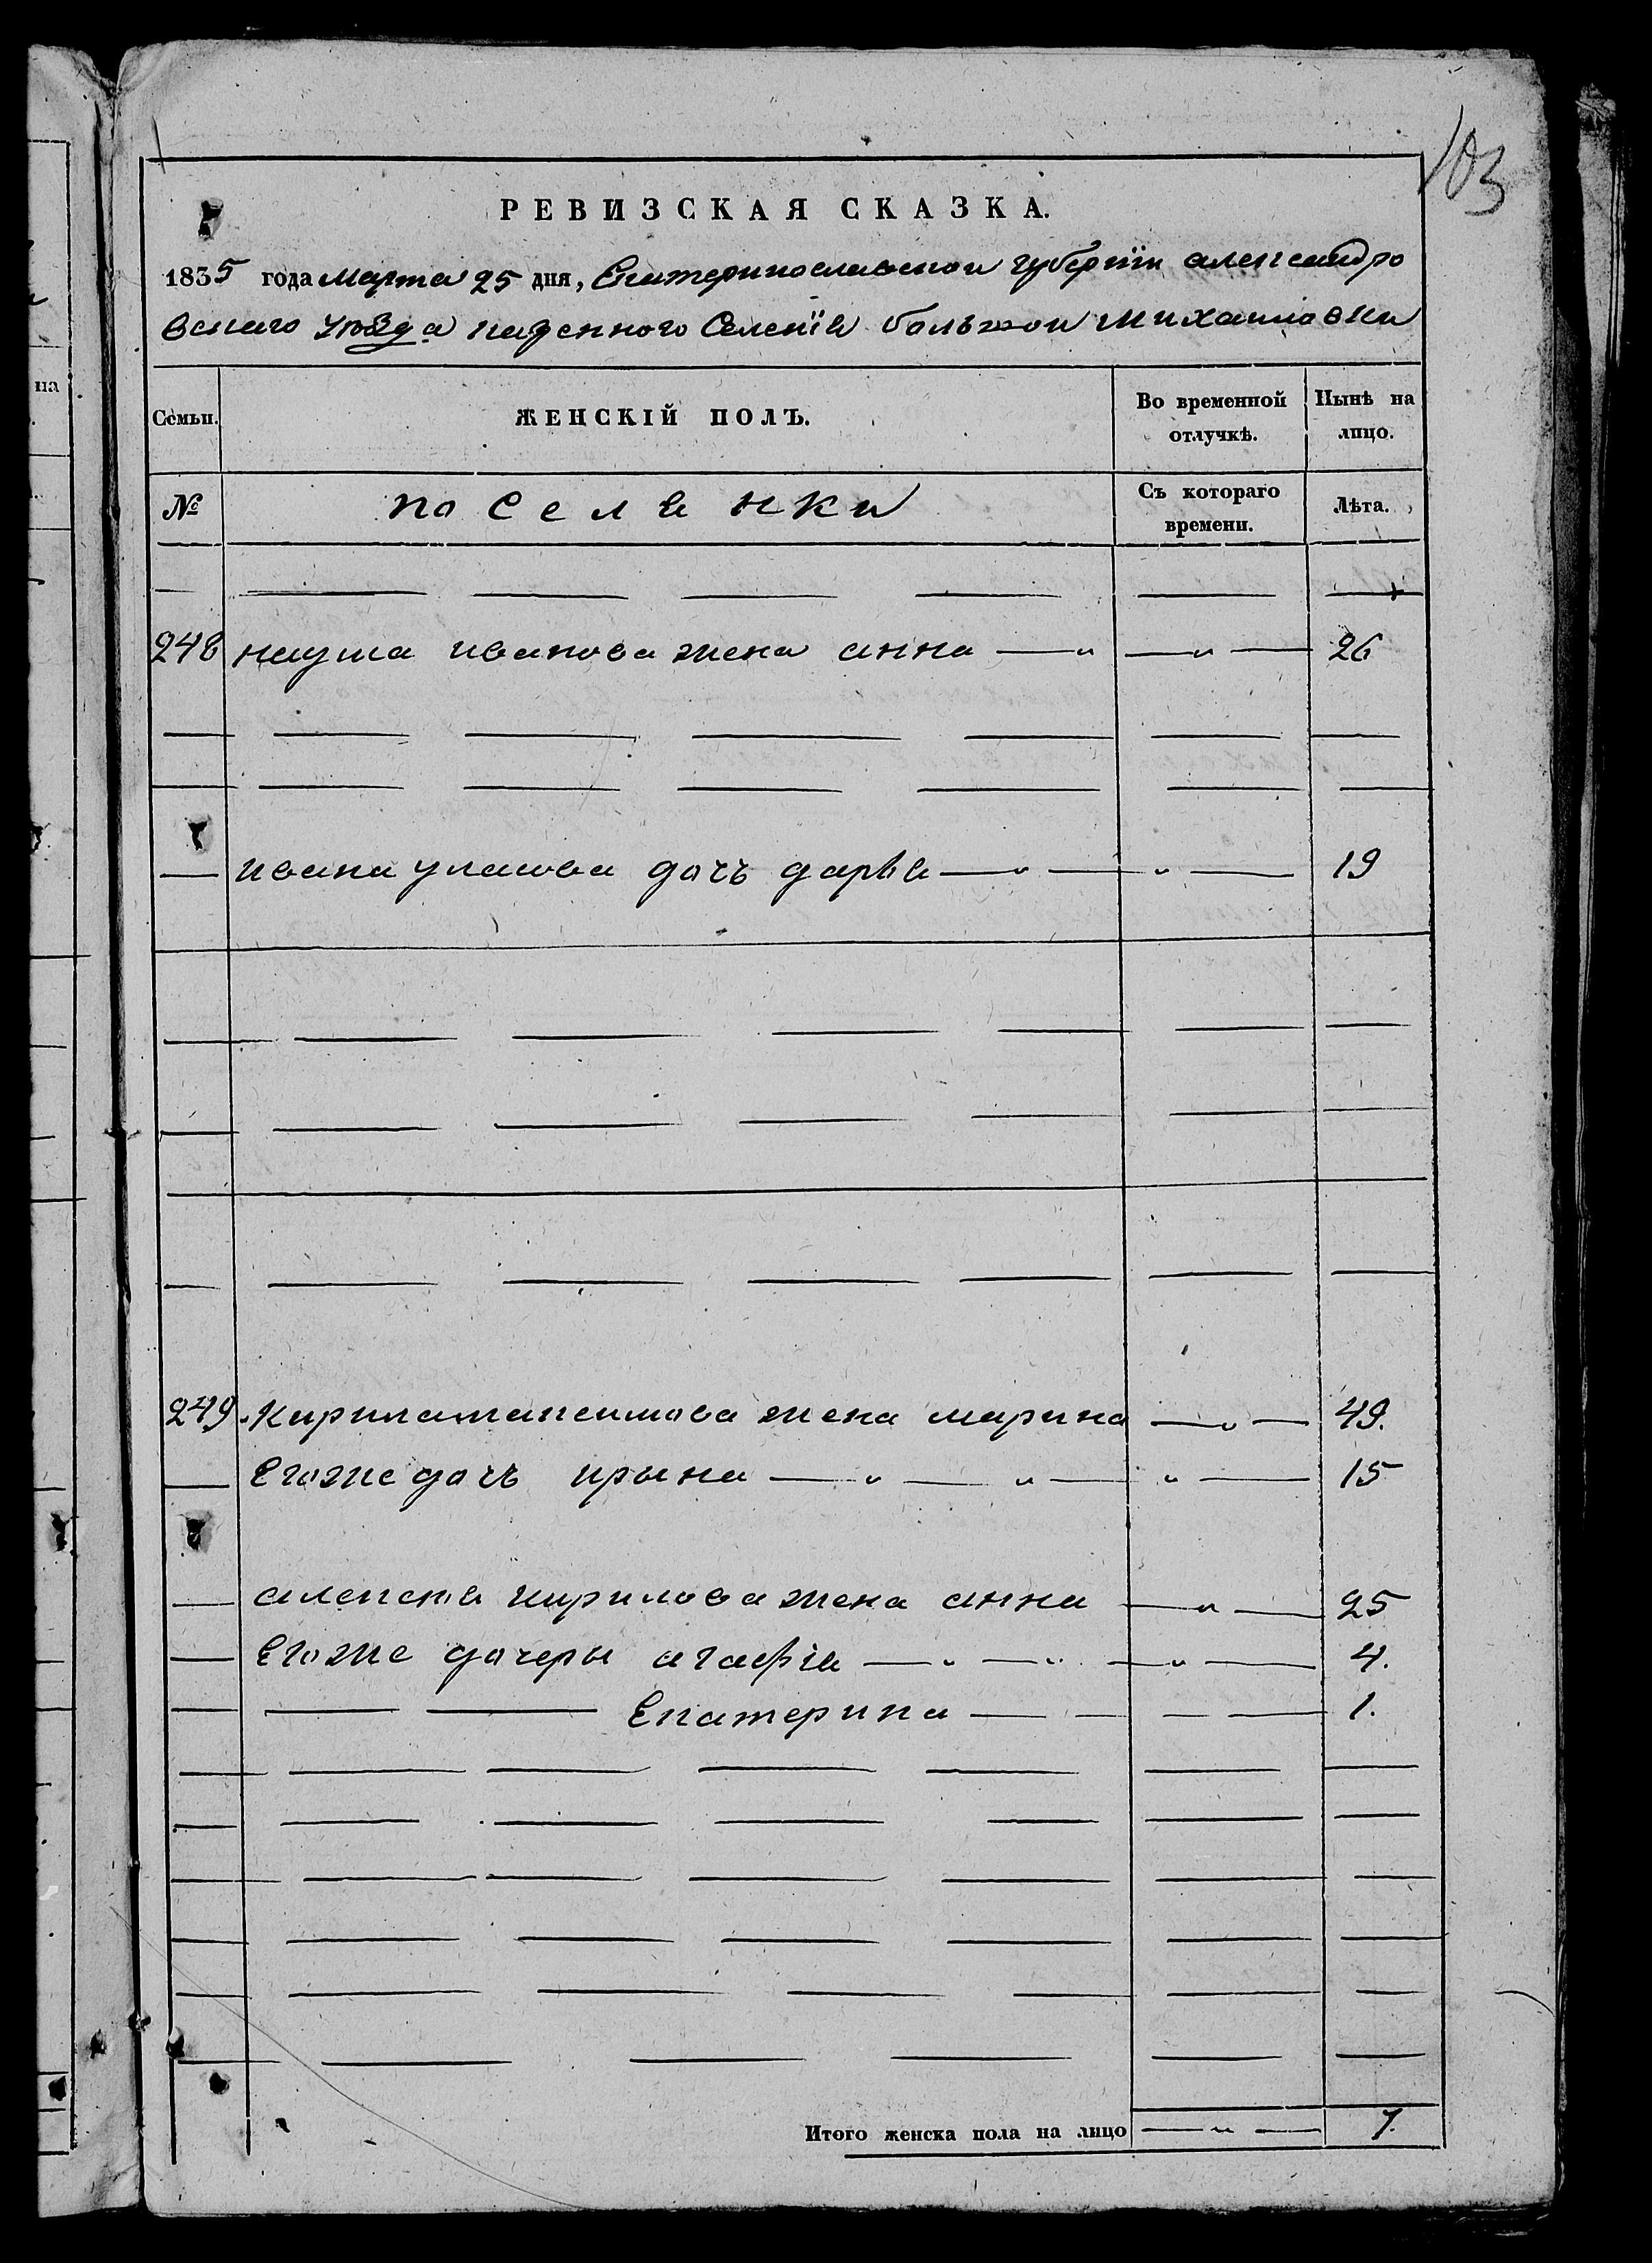 103
РЕВИЗСКАЯ СКАЗКА.
1835 года Марта 25 дня, Екатеринославской губернїи александро
вскаго уѣзда казенного Селенїя большой михайловки
на
Семьи. ЖЕНСКІЙ ПОЛЪ. Во временной отлучкѣ. Нынѣ на лицо.
№ поселянки Съ котораго времени. Лѣта.
248 наума иванова жена анна 26
ивана уласова дочъ дарья 19
249. Кирила макснмова жена марина 49.
Егоже дочъ ирына 15
алексѣя кирилова жена анна 25
Егоже дочеры агафія 4.
Екатерина 1.
Итого женска пола на лицо 7.